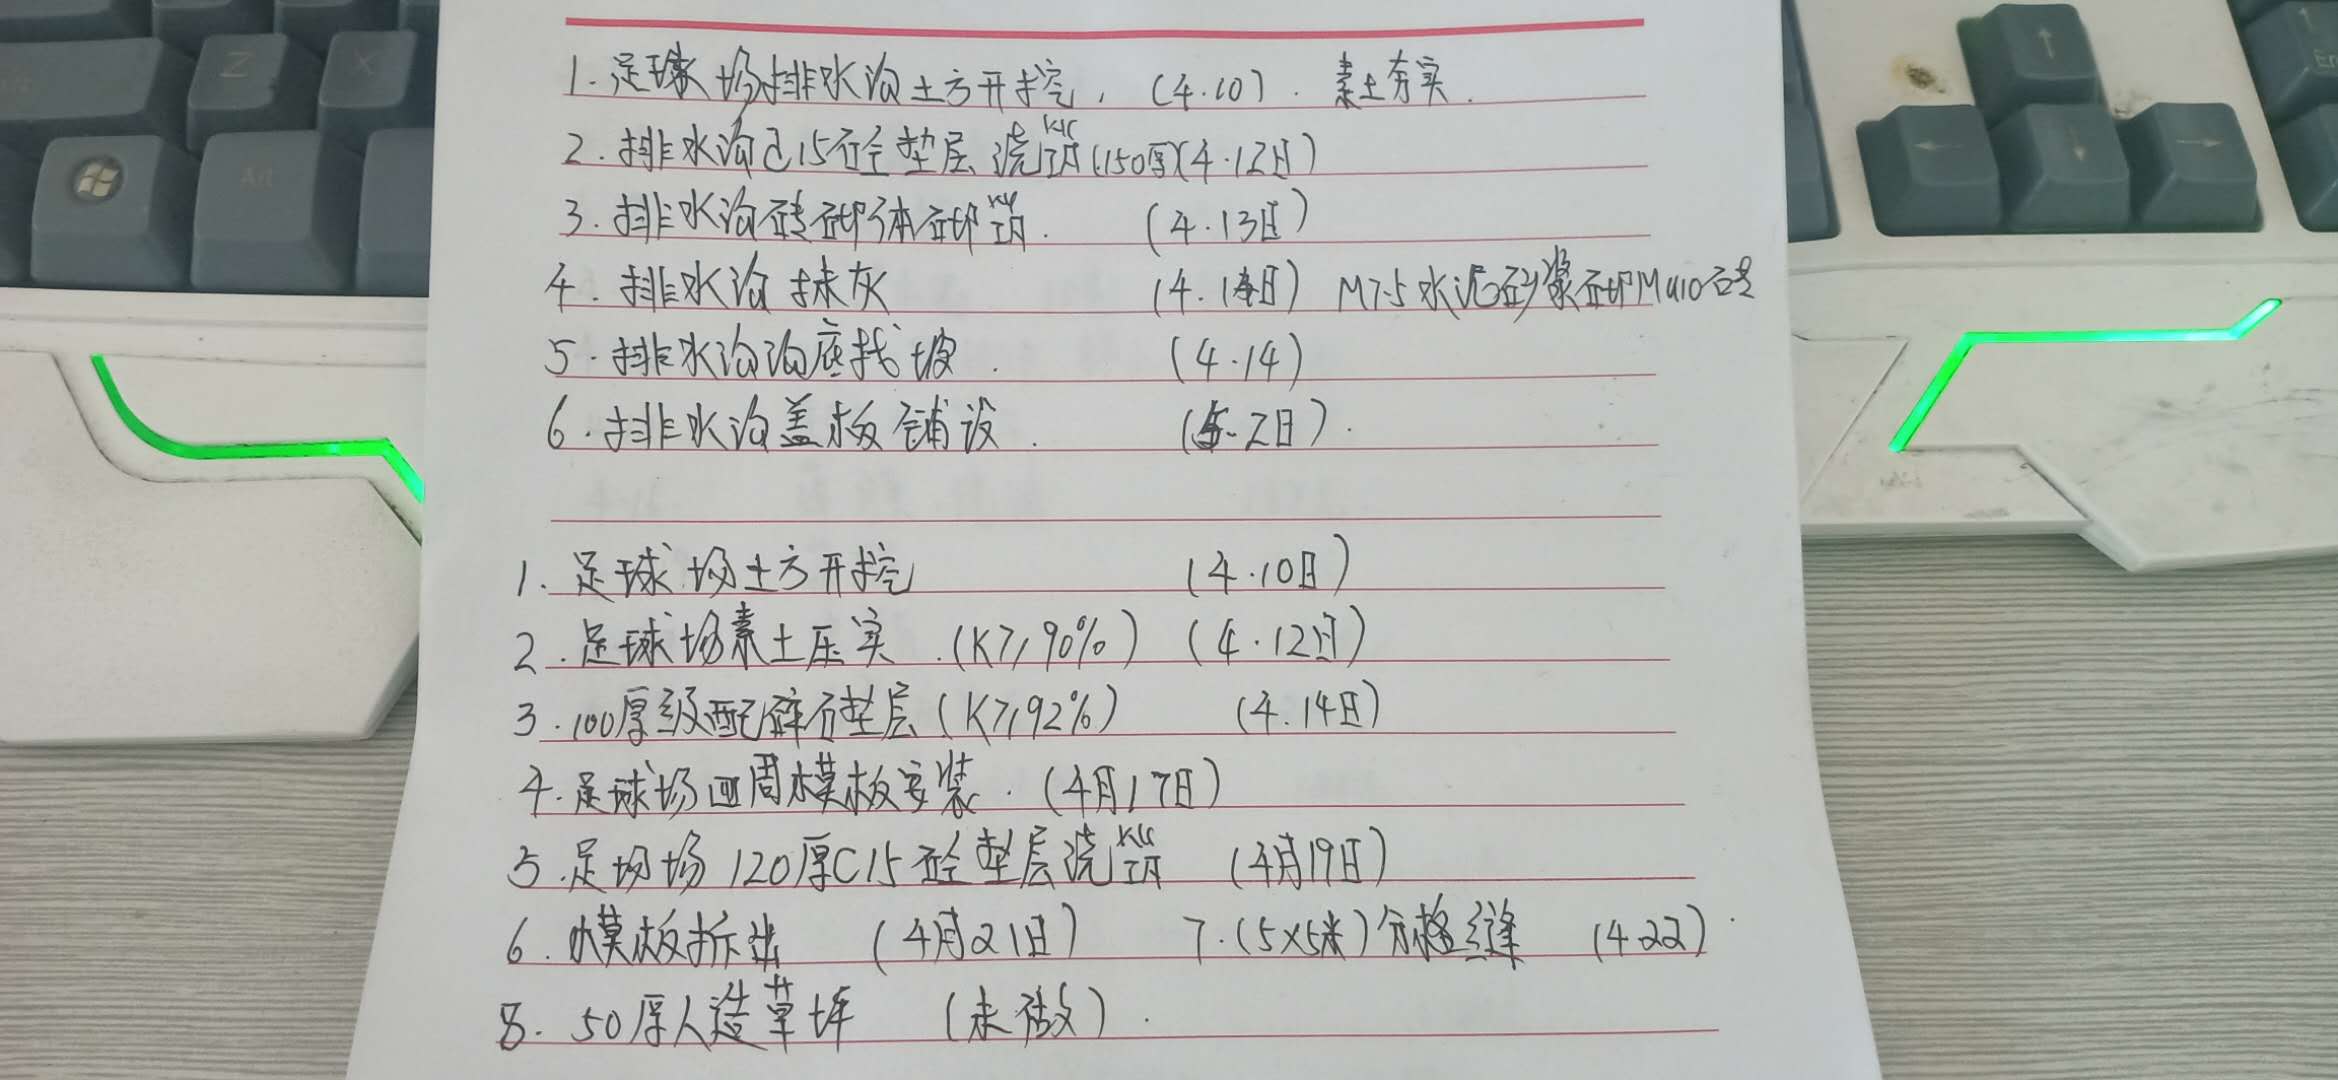 1. 足球场排水沟土方开挖, (4.10). 素土夯实.
2. 排水沟C15砼垫层浇筑(150厚)(4.12日)
3. 排水沟砖砌体砌筑. (4.13日)
4. 排水沟抹灰 (4.14日) M7.5水泥砂浆砌MU10砖
5. 排水沟沟底找坡. (4.14)
6. 排水沟盖板铺设. (5.2日).
1. 足球场土方开挖 (4.10日)
2. 足球场素土压实.(K≥90%) (4.12日)
3. 100厚级配碎石垫层(K≥92%) (4.14日)
4. 足球场四周模板安装. (4月17日)
5. 足场 120厚C15砼垫层浇筑 (4月19日)
6. 模板拆出 (4月21日) 7.(5×5米)分格缝 (4.22)
8. 50厚人造草坪 (未做).
Z
X
Alt